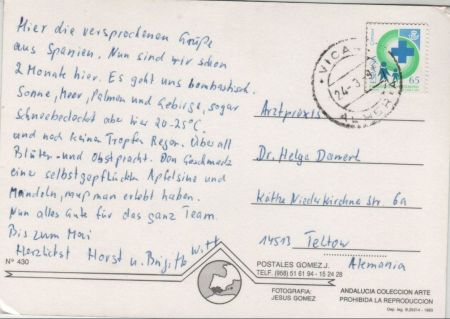 Hier die versprochenen Grüße
aus Spanien. Nun sind wir schon
2 Monate hier. Es geht uns bombastisch.
Sonne, Meer, Palmen und Gebirge, sogar
schneebedeckt aber hier 20-25°C.
und noch keinen Tropfen Regen. Überall
Blüten- und Obstpracht. Den Geschmack
eine selbstgepflückten Apfelsine und
Mandeln, muß man erlebt haben.
Nun alles Gute für das ganz Team.
Bis zum Mai
Herzlichst Horst u. Brigitte Witt
Nº 430
65
VICAR
24-3
ALMERIA
Arztpraxis
Dr. Helga Damert
Käthe Niederkirchner Str. 6a
14513 Teltow
Alemania
POSTALES GOMEZ.J.
TELF. (958) 51 61 94 - 15 24 28
FOTOGRAFIA:
JESUS GOMEZ
ANDALUCIA COLECCION ARTE
PROHIBIDA LA REPRODUCCION